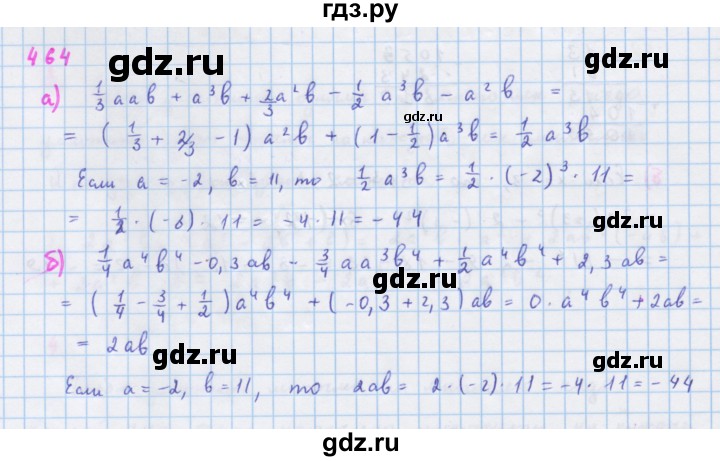 гдз.ру
464
gdz.ru
gdz.ru
а) 1/3 aab + a³b + 2/3 a²b - 1/2 a³b - a²b =
gdz.ru
= (1/3 + 2/3 - 1) a²b + (1 - 1/2) a³b = 1/2 a³b
gdz.ru
gdz.ru
Если a = -2, b = 11, то 1/2 a³b = 1/2 · (-2)³ · 11 =
= 1/2 · (-8) · 11 = -4 · 11 = -44
gdz.ru
б) 1/4 a⁴b⁴ - 0,3ab - 3/4 aa³b⁴ + 1/2 a⁴b⁴ + 2,3ab =
gdz.ru
= (1/4 - 3/4 + 1/2) a⁴b⁴ + (-0,3 + 2,3) ab = 0 · a⁴b⁴ + 2ab =
= 2ab
gdz.ru
gdz.ru
Если a = -2, b = 11, то 2ab = 2 · (-2) · 11 = -4 · 11 = -44
gdz.ru
gdz.ru